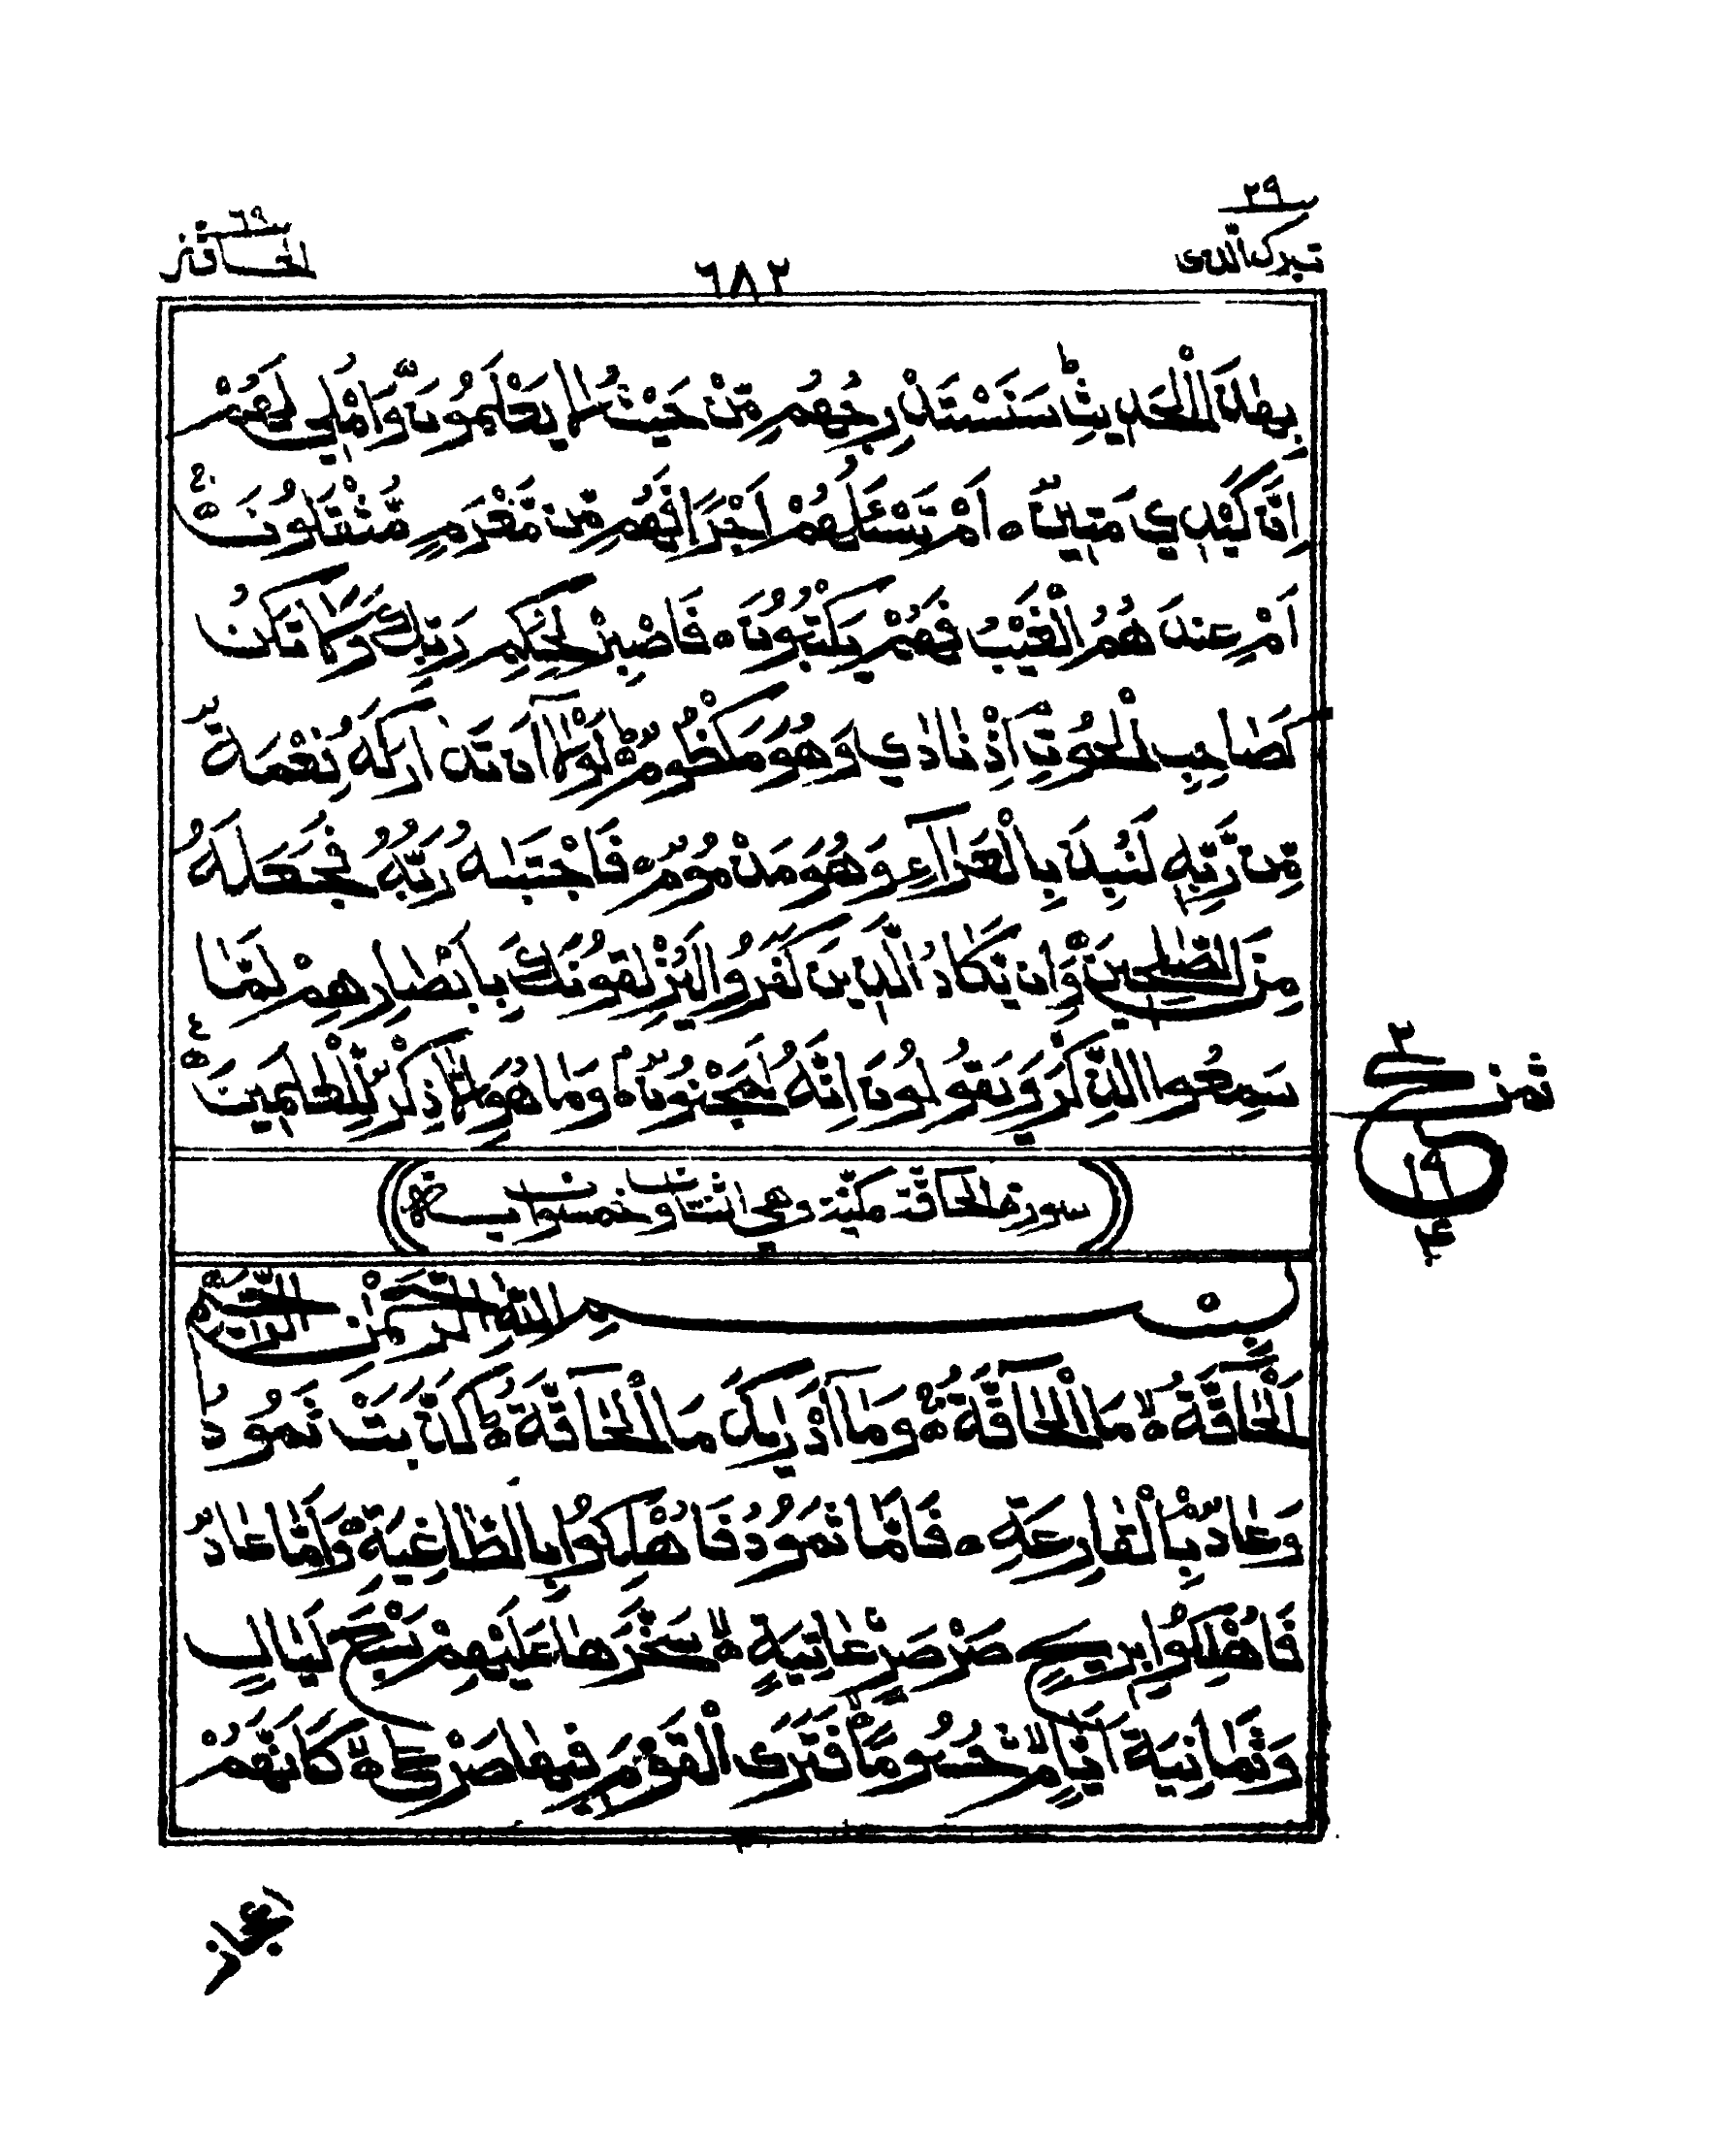 ٢٩
تبرك الذى
٦٨٢
٦٩
الحاقة
بِهٰذَا الْحَدِيْثِ ؕ سَنَسْتَدْرِجُهُمْ مِّنْ حَيْثُ لَا يَعْلَمُوْنَ ۙ وَاُمْلِيْ لَهُمْ
اِنَّ كَيْدِيْ مَتِيْنٌ ۝ اَمْ تَسْـَٔلُهُمْ اَجْرًا فَهُمْ مِّنْ مَّغْرَمٍ مُّثْقَلُوْنَ ۝
اَمْ عِنْدَهُمُ الْغَيْبُ فَهُمْ يَكْتُبُوْنَ ۝ فَاصْبِرْ لِحُكْمِ رَبِّكَ وَلَا تَكُنْ
كَصَاحِبِ الْحُوْتِ ۘ اِذْ نَادٰي وَهُوَ مَكْظُوْمٌ ؕ لَوْلَآ اَنْ تَدٰرَكَهٗ نِعْمَةٌ
مِّنْ رَّبِّهٖ لَنُبِذَ بِالْعَرَآءِ وَهُوَ مَذْمُوْمٌ ۝ فَاجْتَبٰىهُ رَبُّهٗ فَجَعَلَهٗ
مِنَ الصّٰلِحِيْنَ ۝ وَاِنْ يَّكَادُ الَّذِيْنَ كَفَرُوْا لَيُزْلِقُوْنَكَ بِاَبْصَارِهِمْ لَمَّا
سَمِعُوا الذِّكْرَ وَيَقُوْلُوْنَ اِنَّهٗ لَمَجْنُوْنٌ ۘ وَمَا هُوَ اِلَّا ذِكْرٌ لِّلْعٰلَمِيْنَ ۝
ثمن
ع
٢
١٩
٤
سورة الحاقة مكية وهي اثنتان وخمسون اية
بِسْمِ اللّٰهِ الرَّحْمٰنِ الرَّحِيْمِ
اَلْحَآقَّةُ ۙ مَا الْحَآقَّةُ ۚ وَمَآ اَدْرٰىكَ مَا الْحَآقَّةُ ؕ كَذَّبَتْ ثَمُوْدُ
وَعَادٌۢ بِالْقَارِعَةِ ۝ فَاَمَّا ثَمُوْدُ فَاُهْلِكُوْا بِالطَّاغِيَةِ ۝ وَاَمَّا عَادٌ
فَاُهْلِكُوْا بِرِيْحٍ صَرْصَرٍ عَاتِيَةٍ ۙ سَخَّرَهَا عَلَيْهِمْ سَبْعَ لَيَالٍ
وَّثَمٰنِيَةَ اَيَّامٍ ۙ حُسُوْمًا فَتَرَى الْقَوْمَ فِيْهَا صَرْعٰى ۙ كَاَنَّهُمْ
اعجاز